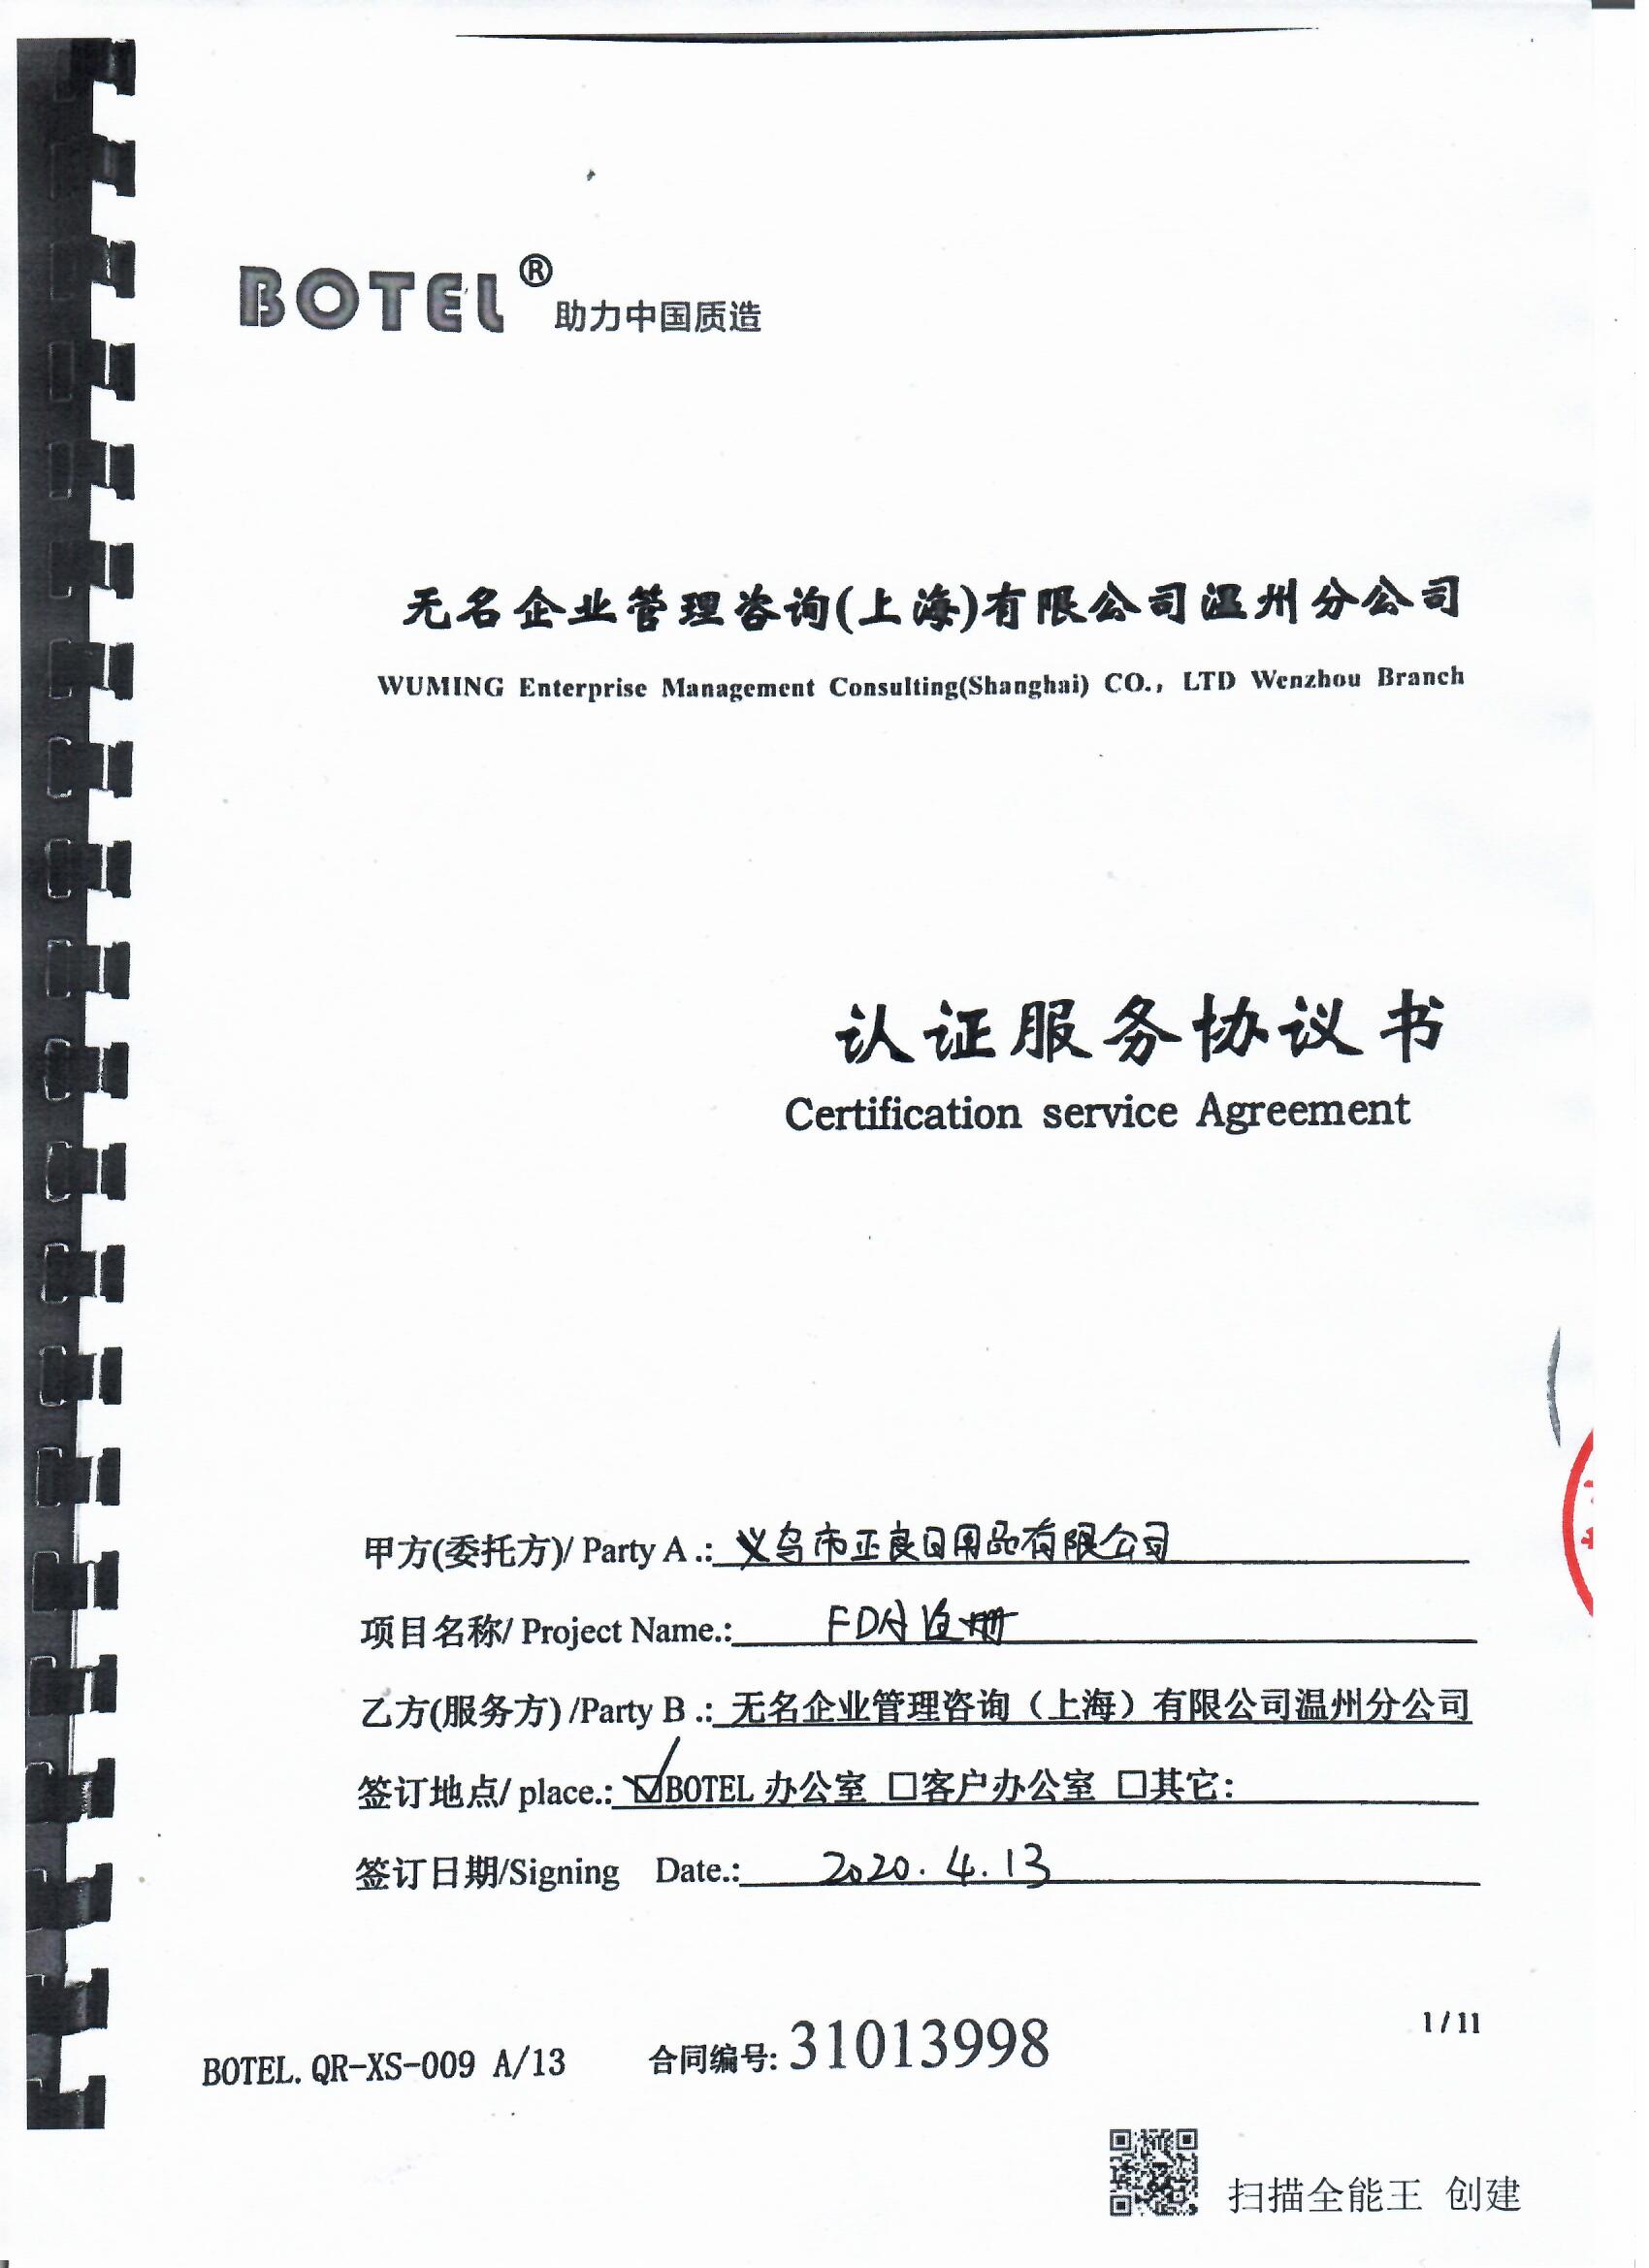 BOTEL® 助力中国质造
无名企业管理咨询(上海)有限公司温州分公司
WUMING Enterprise Management Consulting(Shanghai) CO., LTD Wenzhou Branch
认证服务协议书
Certification service Agreement
甲方(委托方)/ Party A .: 义乌市正良日用品有限公司
项目名称/ Project Name.: FDA注册
乙方(服务方) /Party B .: 无名企业管理咨询（上海）有限公司温州分公司
签订地点/ place.: ☑BOTEL 办公室 □客户办公室 □其它:
签订日期/Signing Date.: 2020.4.13
1/11
BOTEL. QR-XS-009 A/13 合同编号: 31013998
扫描全能王 创建